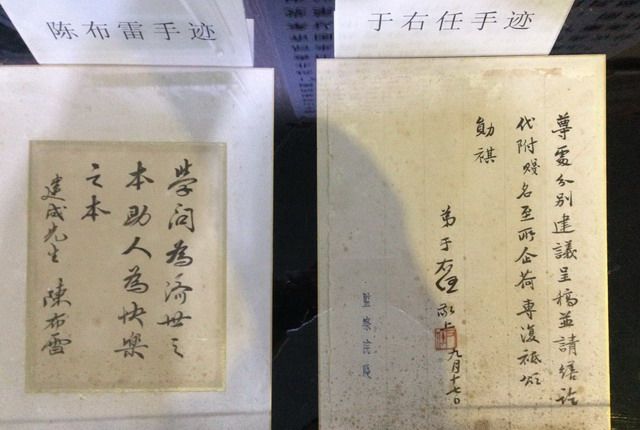 陈布雷手迹
学问為济世之
本助人為快樂
之本
建成先生 陳布雷
于右任手迹
尊處分别建議呈稿並請繕託
代附賤名至所企荷專復祗頌
勛祺
弟于右任敬上
九月十七日
監察院